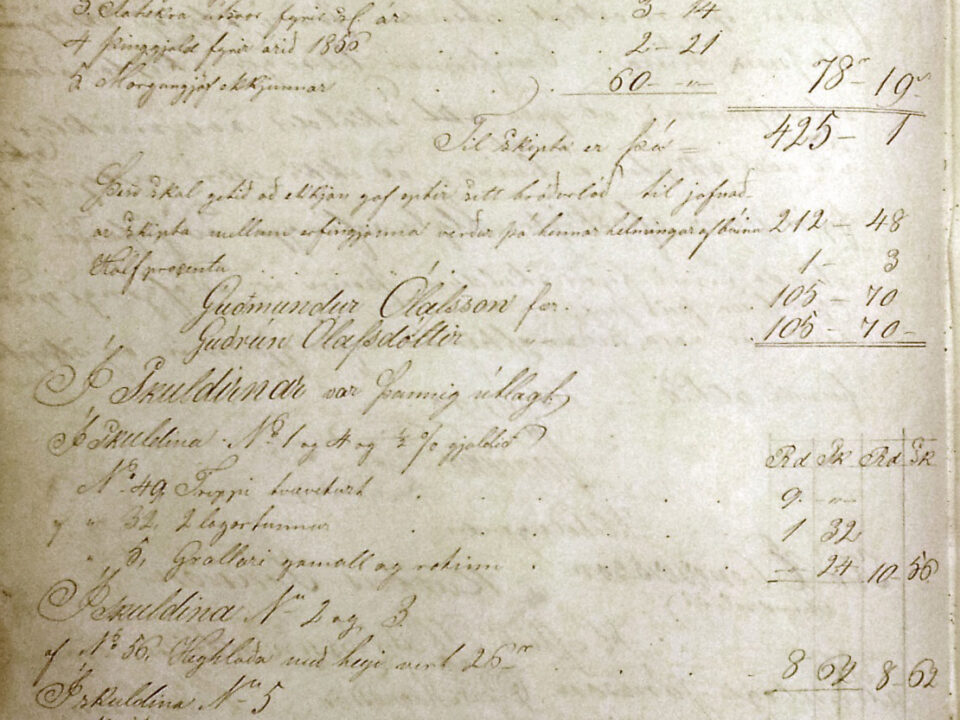 3 útsvar fyrir sl. ár 3 – 14
4 Þinggjald fyrir árið 1856 2 – 21
5 Morgungjöf ekkjunnar 60 – „ – 78 – 19
Til skipta er þá = 425 – 1
Þess skal getið að ekkjan gaf eptir sitt bróðurlóð til jafnað-
ar skipta millum erfingjanna verður þá hennar helmingur af búinu 212 – 48
Half prosenta 1 – 3
Guðmundur Ólafsson fær 105 – 70
Guðrún Ólafsdóttir 105 – 70 –
Í Skuldirnar var þannig útlagt
Í Skuldina No 1 og 4 og ½ % gjaldið Rd Sk Rd Sk
No 49 Trippi tvæveturt 9 – „ –
af „ 32, 2 lagartunnur 1 32
„ 5, Grallari gamall og rotinn – 24 10 – 56
Í Skuldina No 2 og 3
af No 56, Heyhlaða með heyi vert 26 8 62 8 – 62
Í skuldina No 5